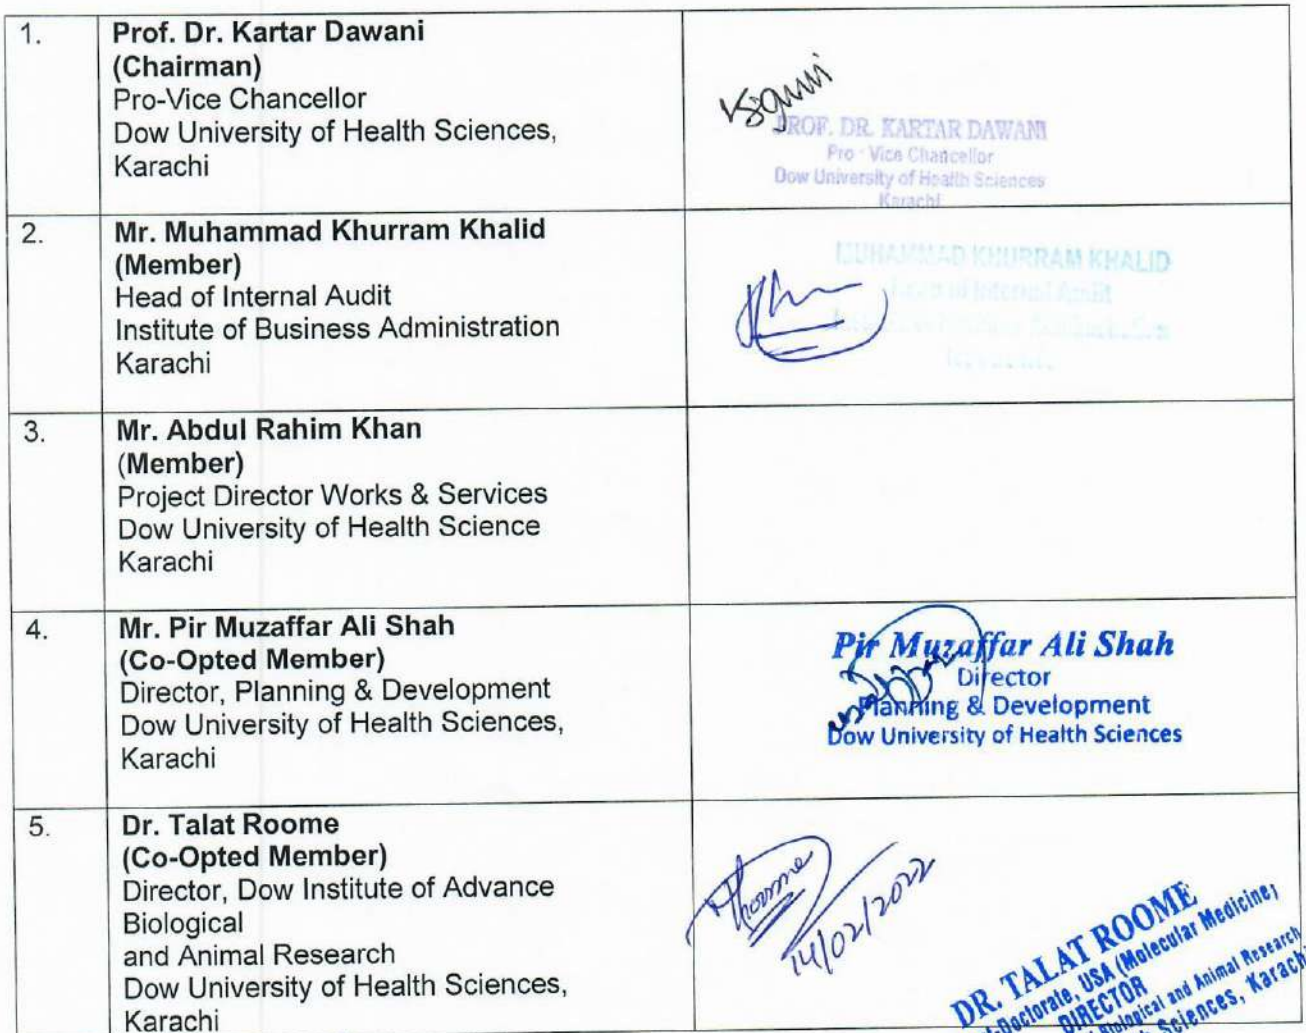 1.
Prof. Dr. Kartar Dawani
(Chairman)
Pro-Vice Chancellor
Dow University of Health Sciences,
Karachi
PROF. DR. KARTAR DAWANI
Pro - Vice Chancellor
Dow University of Health Sciences
Karachi
2.
Mr. Muhammad Khurram Khalid
(Member)
Head of Internal Audit
Institute of Business Administration
Karachi
MUHAMMAD KHURRAM KHALID
Head of Internal Audit
3.
Mr. Abdul Rahim Khan
(Member)
Project Director Works & Services
Dow University of Health Science
Karachi
4.
Mr. Pir Muzaffar Ali Shah
(Co-Opted Member)
Director, Planning & Development
Dow University of Health Sciences,
Karachi
Pir Muzaffar Ali Shah
Director
Planning & Development
Dow University of Health Sciences
5.
Dr. Talat Roome
(Co-Opted Member)
Director, Dow Institute of Advance
Biological
and Animal Research
Dow University of Health Sciences,
Karachi
14/02/2022
DR. TALAT ROOME
Doctorate, USA (Molecular Medicine)
DIRECTOR
Biological and Animal Research
Sciences, Karachi